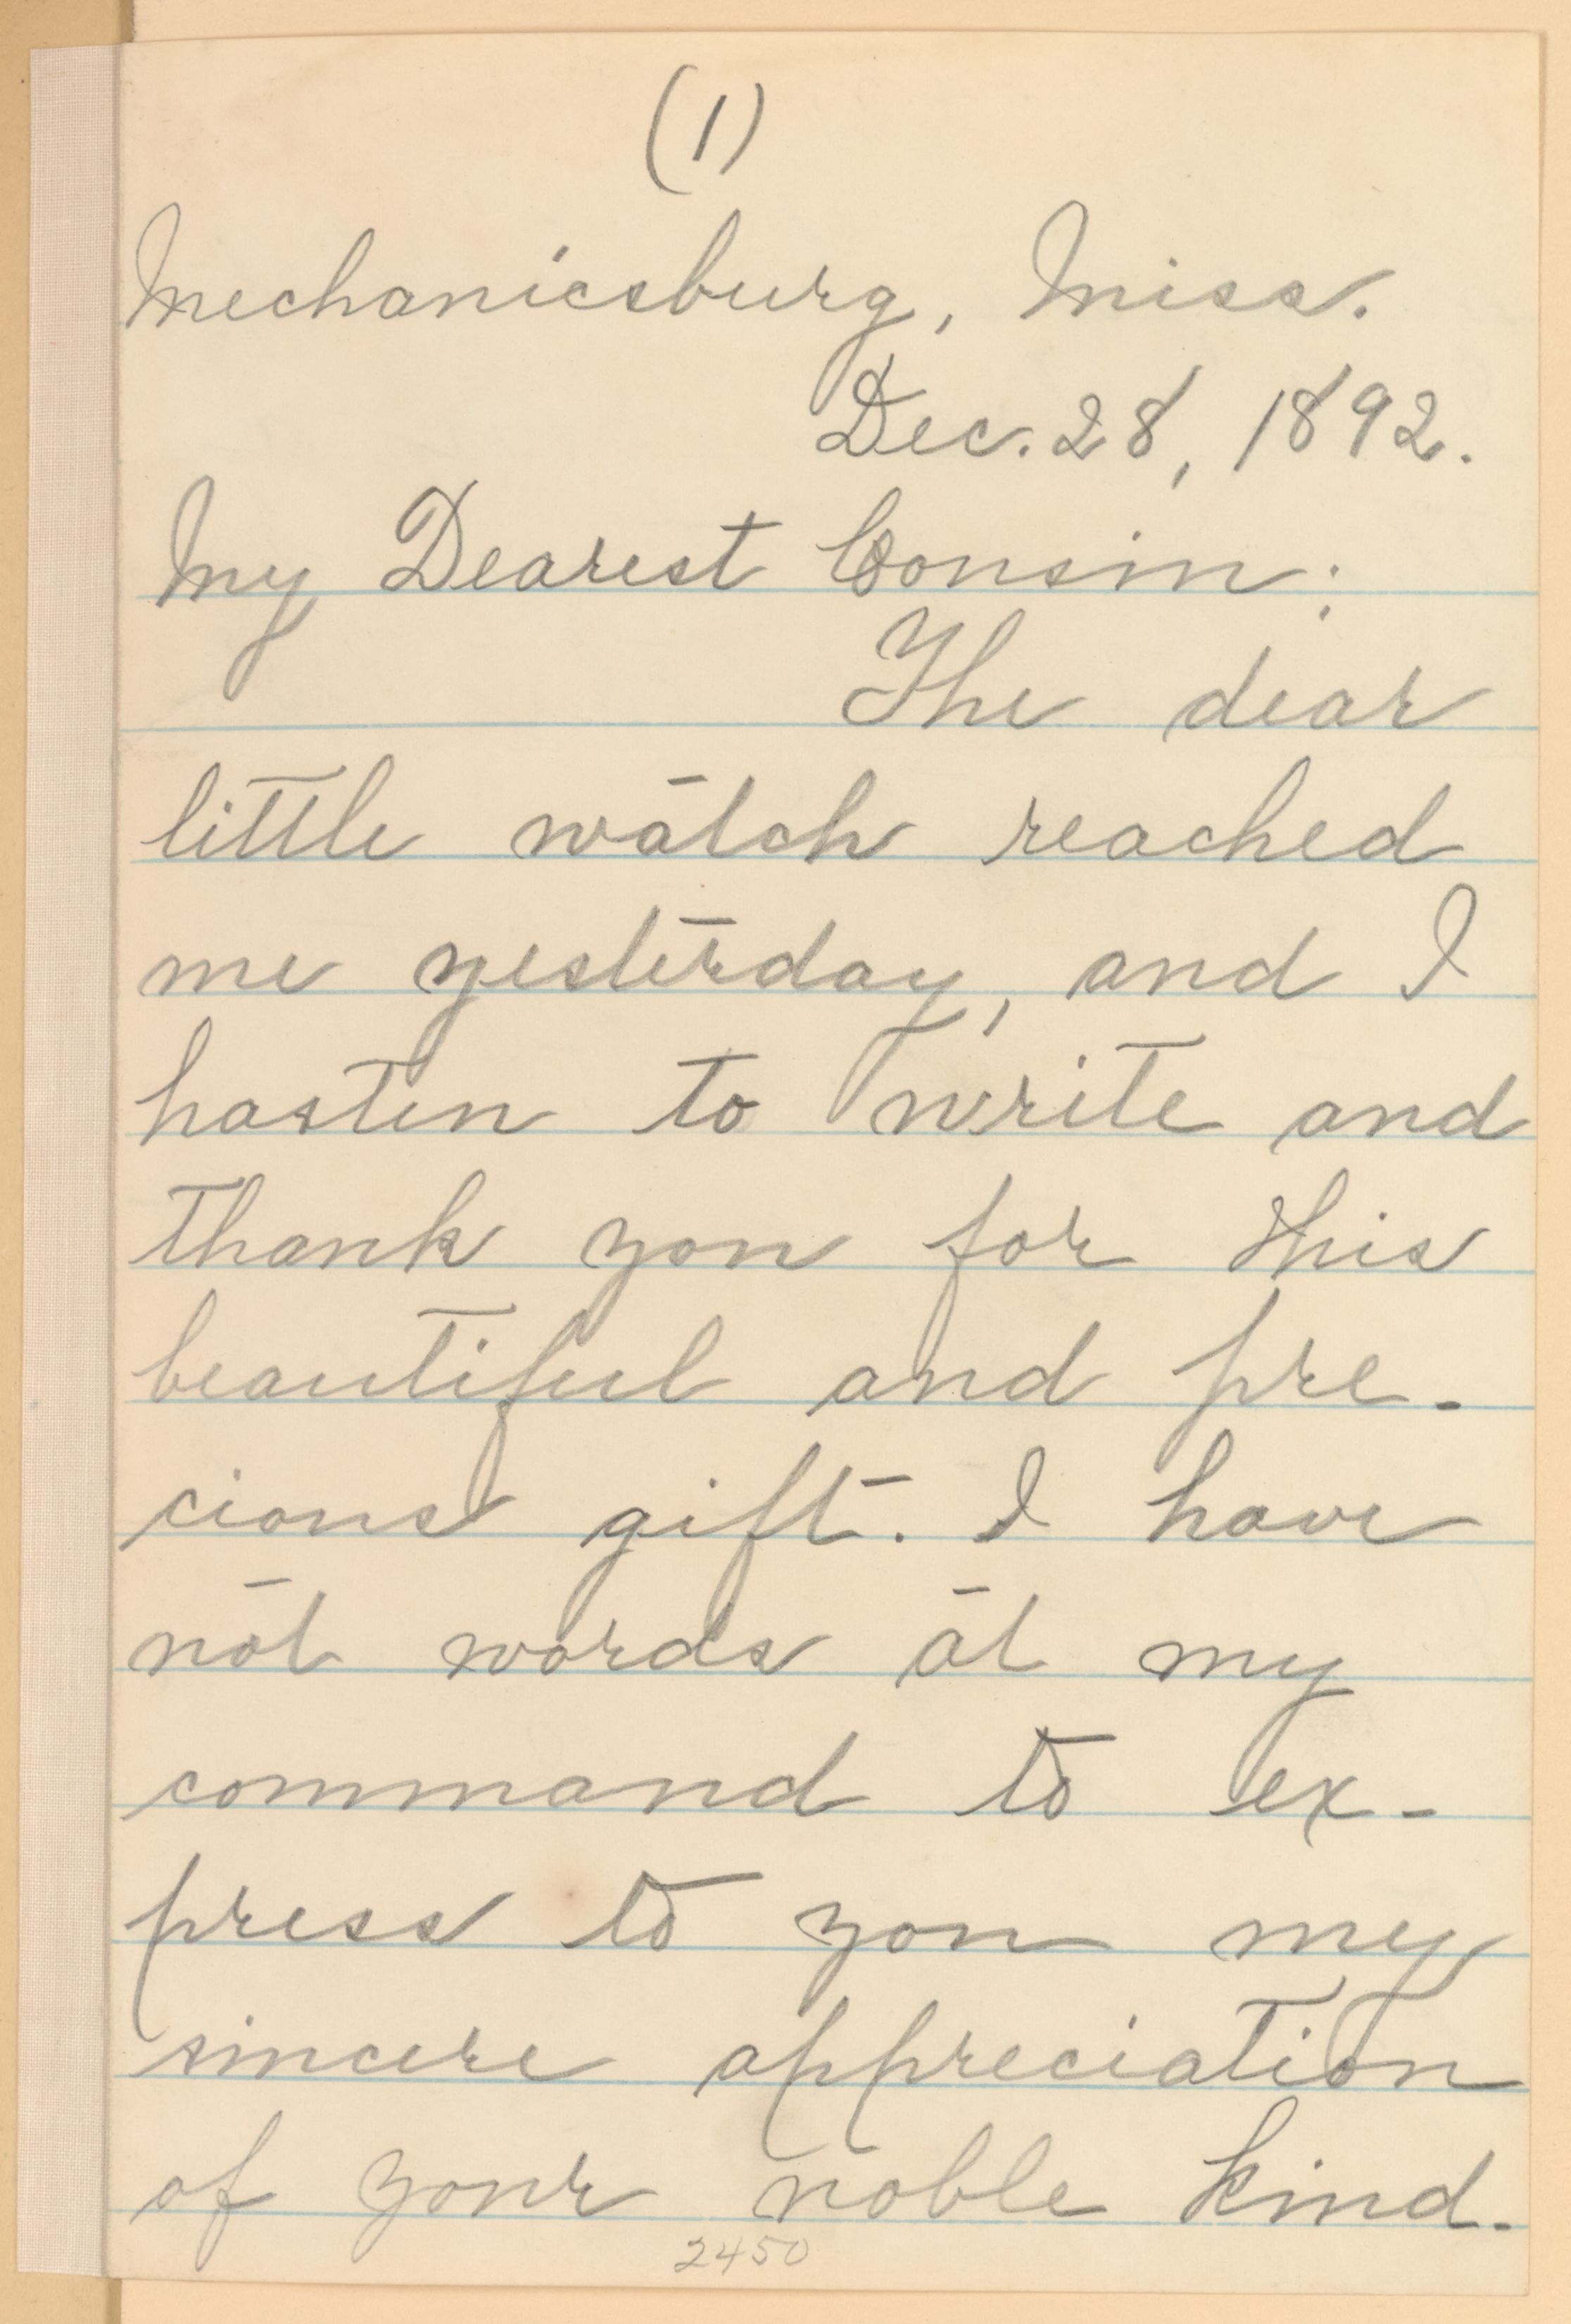 (1)
Mechanicsburg, Miss.
Dec. 28, 1892.
My Dearest Cousin;
The dear
little watch reached
me yesterday, and I
hasten to write and
thank you for this
beautiful and pre-
cious gift. I have
not words at my
command to ex-
press to you my
sincere appreciation
of your noble kind-
2450